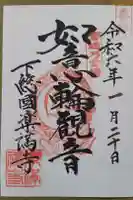 令和六年 一月二十日
如意輪觀音
下總國福寺